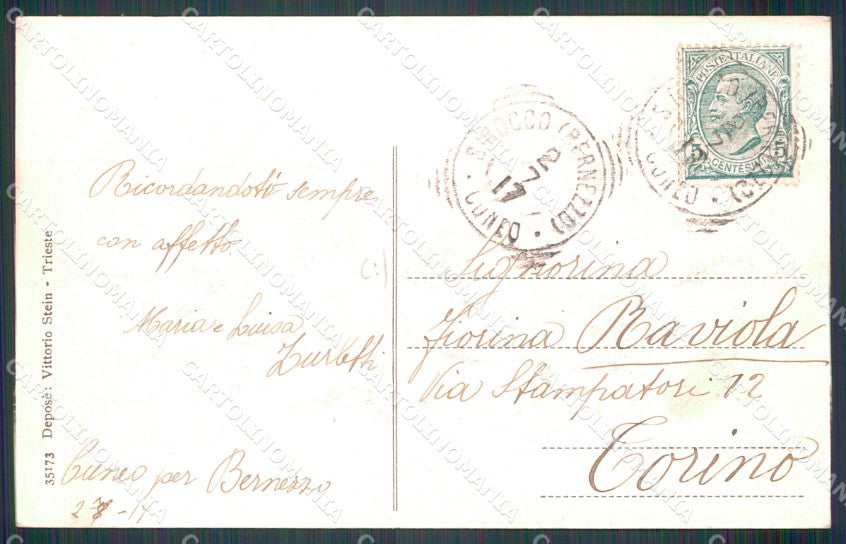 Ricordandoti sempre
con affetto
Maria e Luisa
Zurletti
Cuneo per Bernezzo
35173 Deposè: Vittorio Stein - Trieste
S. ROCCO (BERNEZZO)
2 7 17
CUNEO
POSTE ITALIANE
5 CENTESIMI 5
Signorina
Fiorina Raviola
Via Stampatori 12
Torino
CARTOLINOMANIA